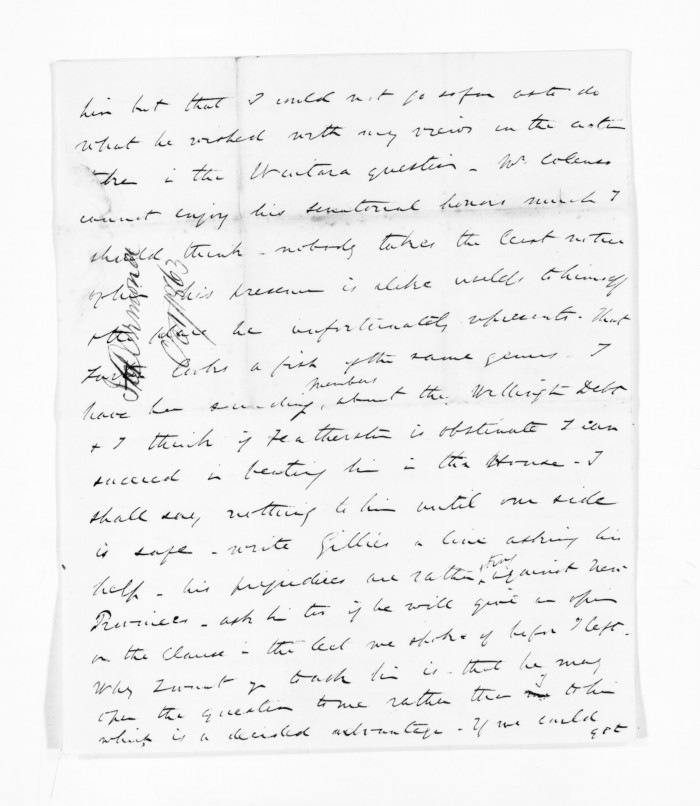 him but that I could not go so far as to do
what he wished with my views on the action
taken in the Waitara question - Mr. Colenso
cannot enjoy his senatorial honors much I
should think - nobody takes the least notice
of him his presence is alike useless to himself
& the place he unfortunately represents - that
looks a fish of the same genus - I
have been sounding members about the Wellington Debt
& I think if Featherston is obstinate I can
succeed in beating him in the House - I
shall say nothing to him until our side
is safe - write Gillies a line asking his
help - his prejudices are rather strong against New
Provinces - ask him too if he will give an opin
on the Clause in the we spoke of before I left -
Why I want you to ask him is - that he may
open the question to me rather than I to him
which is a decided advantage - If we could
get
J D Ormond
Oct 1863